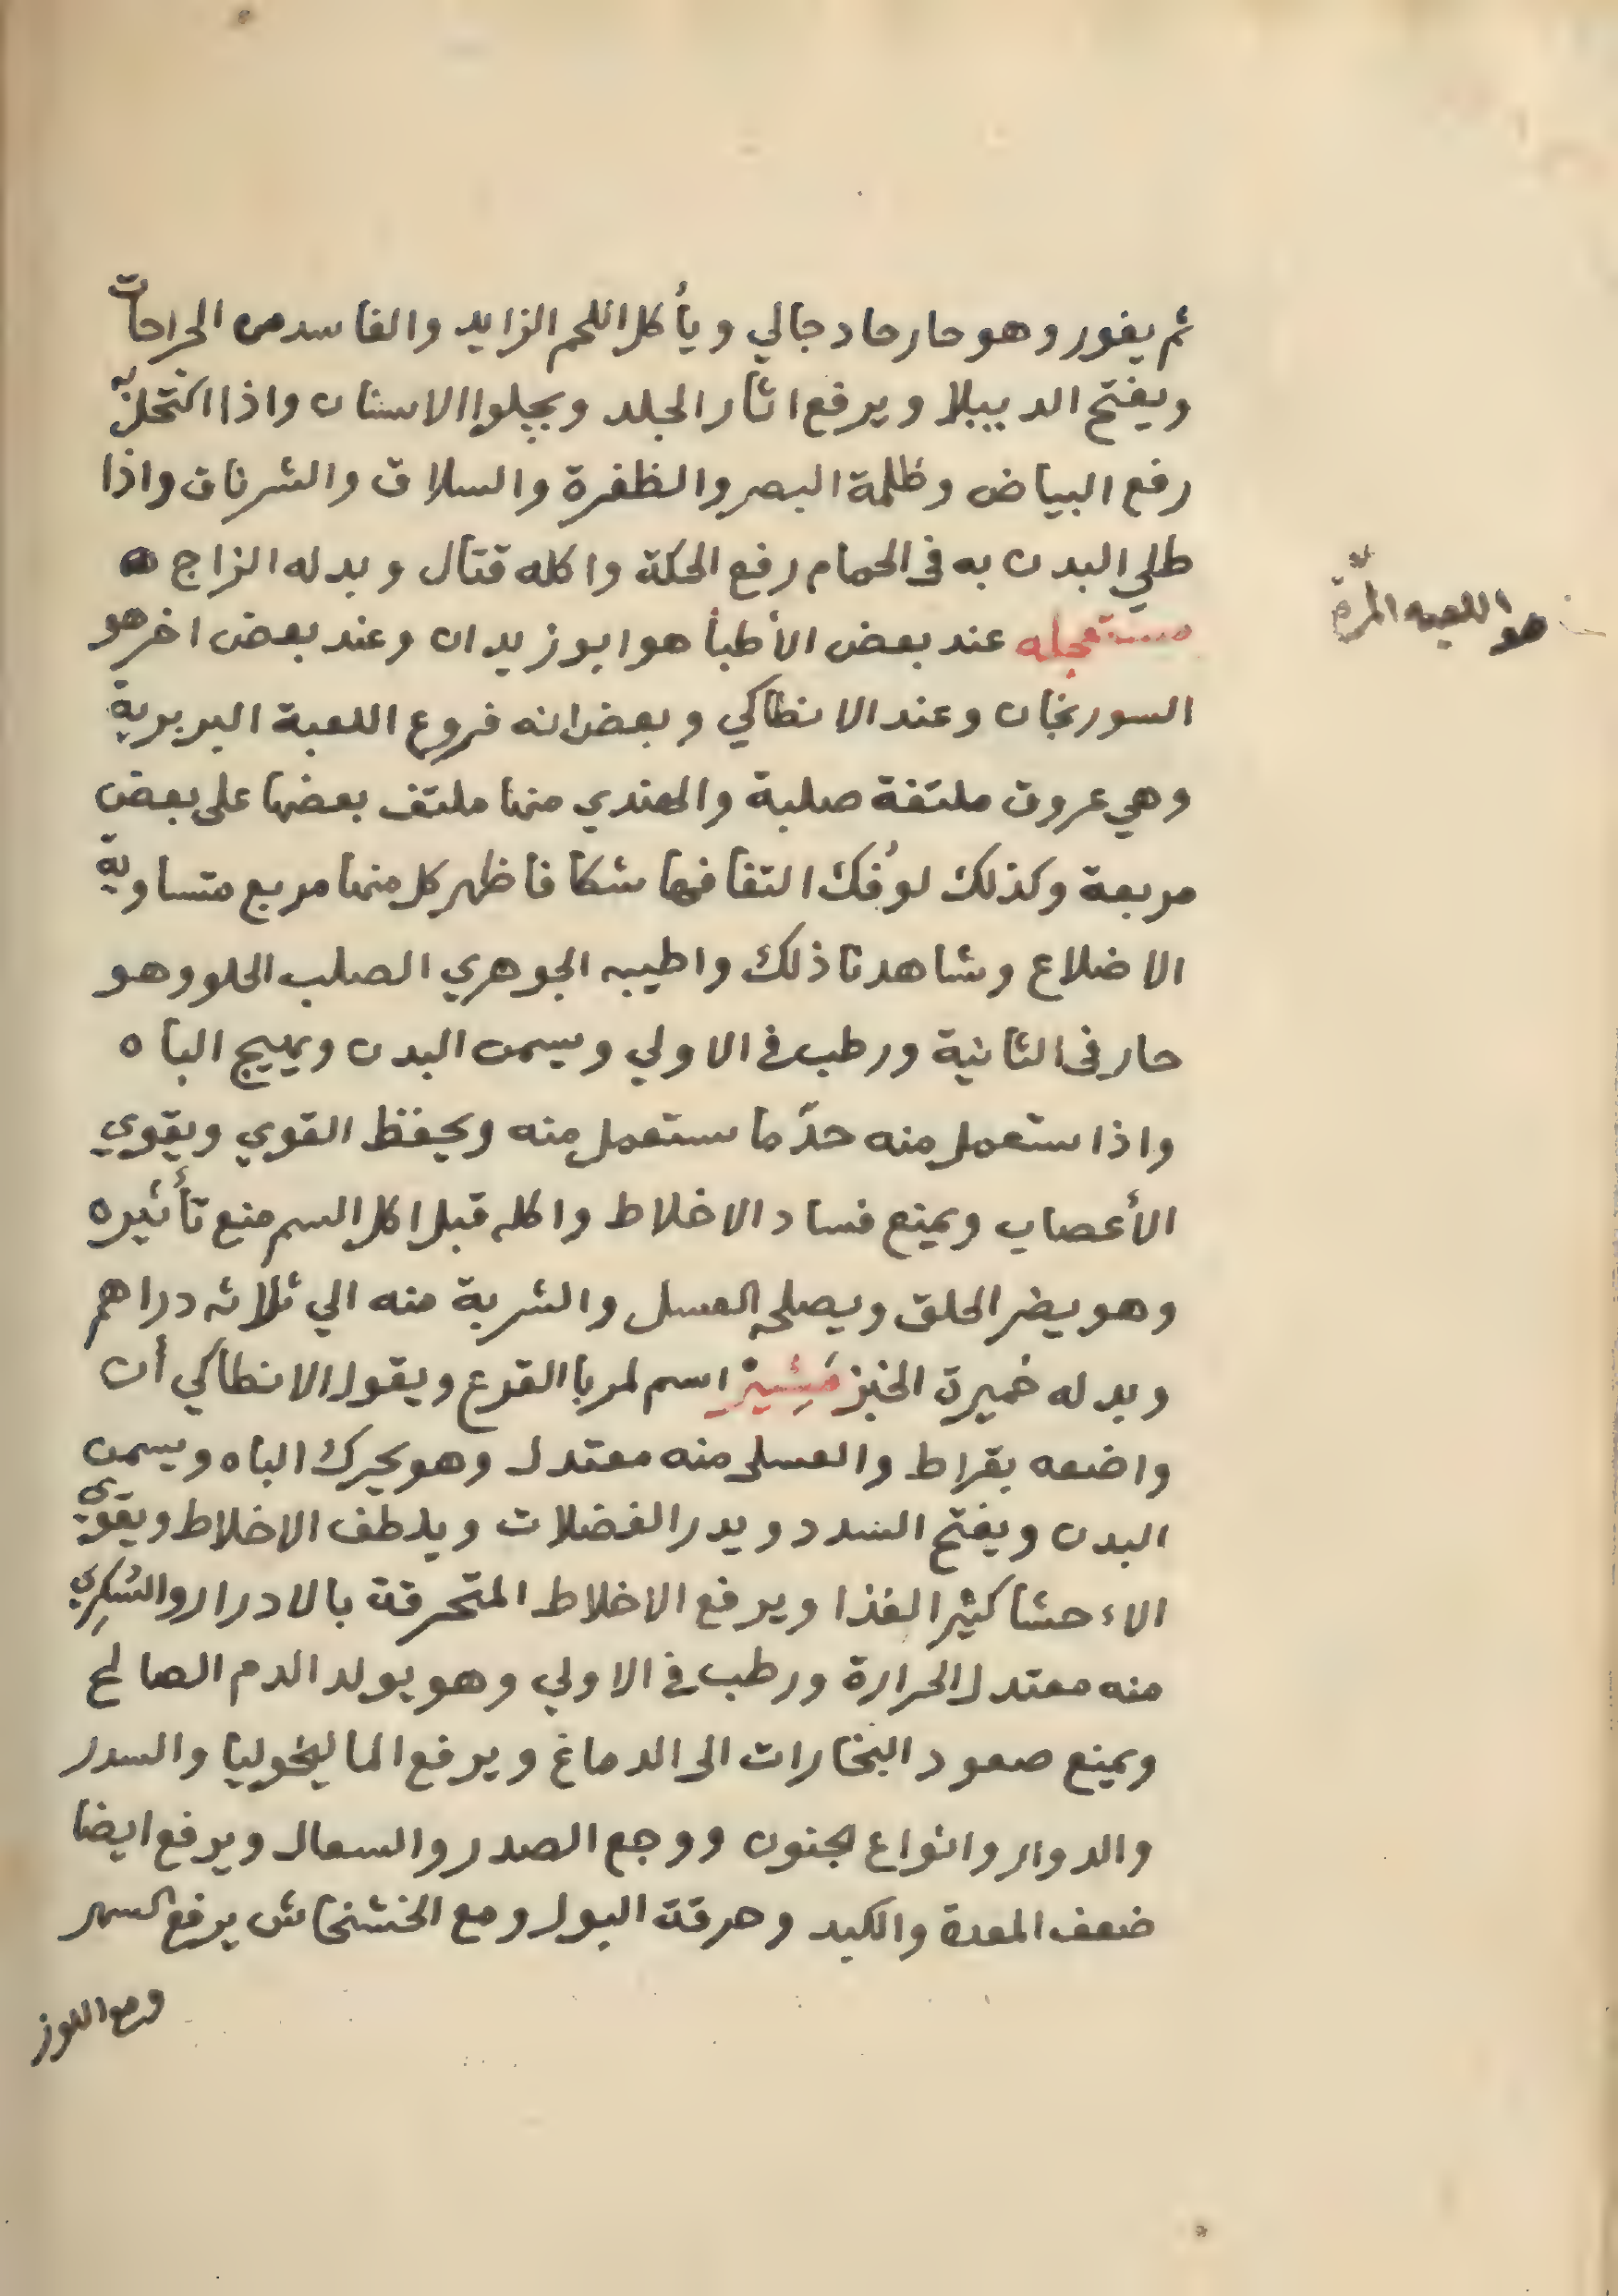 ثم يغور وهو حار حاد جالي ويأكل اللحم الزايد والفاسد من الجراحات
ويفتح الدبيلا ويرفع اثار الجلد ويجلوا الاسنان واذا اكتحل به
رفع البياض وظلمة البصر والظفرة والسلاق والشرناق واذا
طلي البدن به فى الحمام رفع الحكة واكله قتال وبدله الزاج ه
مستعجله عند بعض الأطبا هو ابوزيدان وعند بعض اخر هو
هو اللعبه المرة
السورنجان وعند الانطاكي وبعض انه فروع اللعبة البربرية
وهي عروق ملتفة صلبة والهندي منها ملتف بعضها على بعض
مربعة وكذلك لو فُك التفافها شكافا ظهر كل منها مربع متساوية
الاضلاع وشاهدنا ذلك واطيبه الجوهري الصلب الحلو وهو
حار فى الثانية ورطب فى الاولي ويسمن البدن ويهيج الباه
واذا ستعمل منه حدّ ما ستعمل منه ويحفظ القوي ويقوي
الأعصاب ويمنع فساد الاخلاط واكله قبل اكل السم منع تأثيره
وهو يضر الحلق ويصلحه العسل والشربة منه الي ثلاثه دراهم
وبدله خميرة الخبز مَشِيز اسم لمربا القرع ويقول الانطاكي أن
واضعه بقراط والعسلى منه معتدل وهو يحرك الباه ويسمن
البدن ويفتح السدد ويدر الفضلات ويلطف الاخلاط ويقوّي
الاءحشا كثير الغذا ويرفع الاخلاط المتحرقة بالادرار والسُكري
منه معتدل الحرارة ورطب فى الاولي وهو يولد الدم الصالح
ويمنع صعود البخارات الى الدماغ ويرفع الماليخوليا والسدر
والدوار وانواع الجنون ووجع الصدر والسعال ويرفع ايضا
ضعف المعدة والكبد وحرقة البول ومع الخشخاش يرفع السهر
ومع اللوز